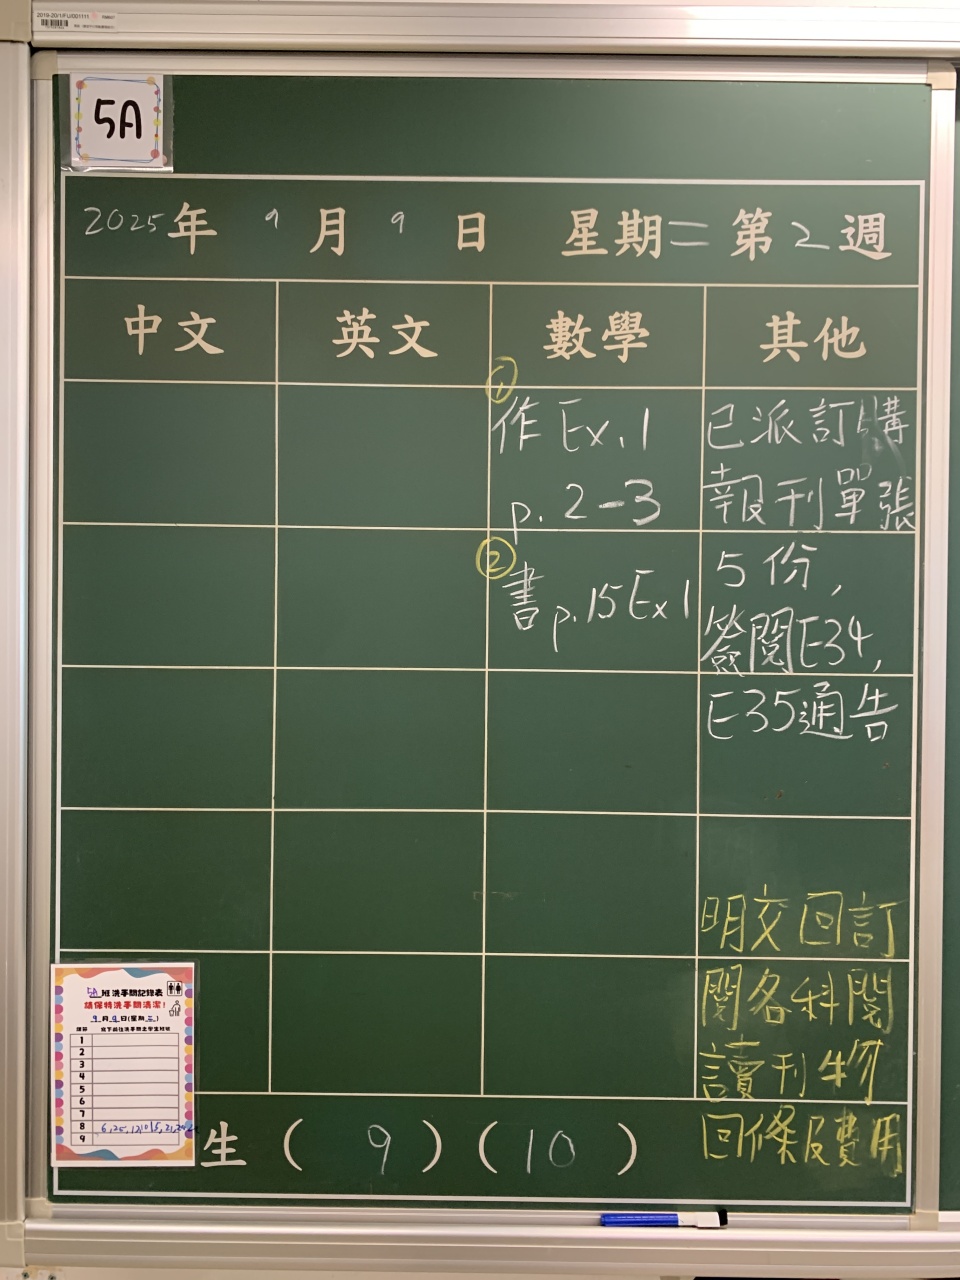 2019-20/1/FU/001111
5A
2025年 9月 9日 星期二 第2週
中文 英文 數學 其他
① 作 Ex.1
p.2-3
② 書 p.15 Ex1
已派訂購
報刊單張
5份,
簽閱E34,
E35通告
明交回訂
閱各科閱
讀刊物
回條及費用
5A班洗手間記錄表
請保持洗手間清潔!
9月9日(星期二)
1
2
3
4
5
6
7
8
9
生 ( 9 ) ( 10 )